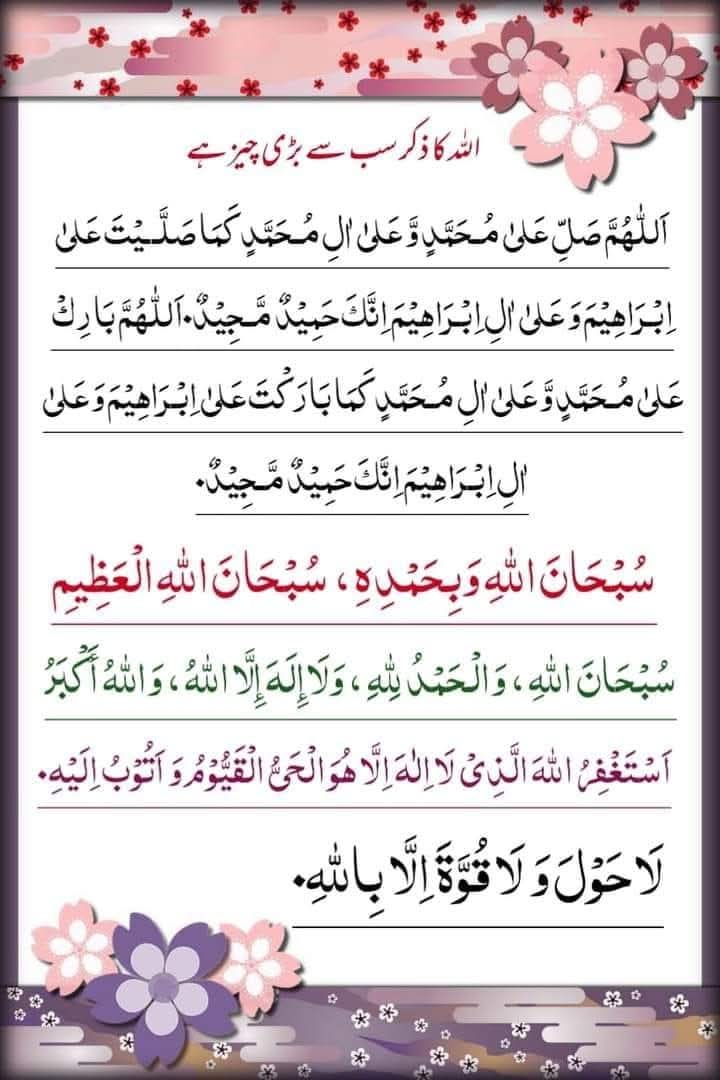 اللہ کا ذکر سب سے بڑی چیز ہے
اَللّٰهُمَّ صَلِّ عَلٰی مُحَمَّدٍ وَّ عَلٰی اٰلِ مُحَمَّدٍ کَمَا صَلَّیْتَ عَلٰی
اِبْرَاهِیْمَ وَ عَلٰی اٰلِ اِبْرَاهِیْمَ اِنَّکَ حَمِیْدٌ مَّجِیْدٌ۔ اَللّٰهُمَّ بَارِكْ
عَلٰی مُحَمَّدٍ وَّ عَلٰی اٰلِ مُحَمَّدٍ کَمَا بَارَکْتَ عَلٰی اِبْرَاهِیْمَ وَ عَلٰی
اٰلِ اِبْرَاهِیْمَ اِنَّکَ حَمِیْدٌ مَّجِیْدٌ۔
سُبْحَانَ اللهِ وَبِحَمْدِهِ ، سُبْحَانَ اللهِ الْعَظِيمِ
سُبْحَانَ اللهِ ، وَالْحَمْدُ لِلّٰهِ ، وَلَا إِلَهَ إِلَّا اللهُ ، وَاللهُ أَكْبَرُ
اَسْتَغْفِرُ اللهَ الَّذِیْ لَا اِلٰهَ اِلَّا هُوَ الْحَیُّ الْقَیُّوْمُ وَ اَتُوْبُ اِلَیْهِ۔
لَا حَوْلَ وَ لَا قُوَّةَ اِلَّا بِاللهِ۔